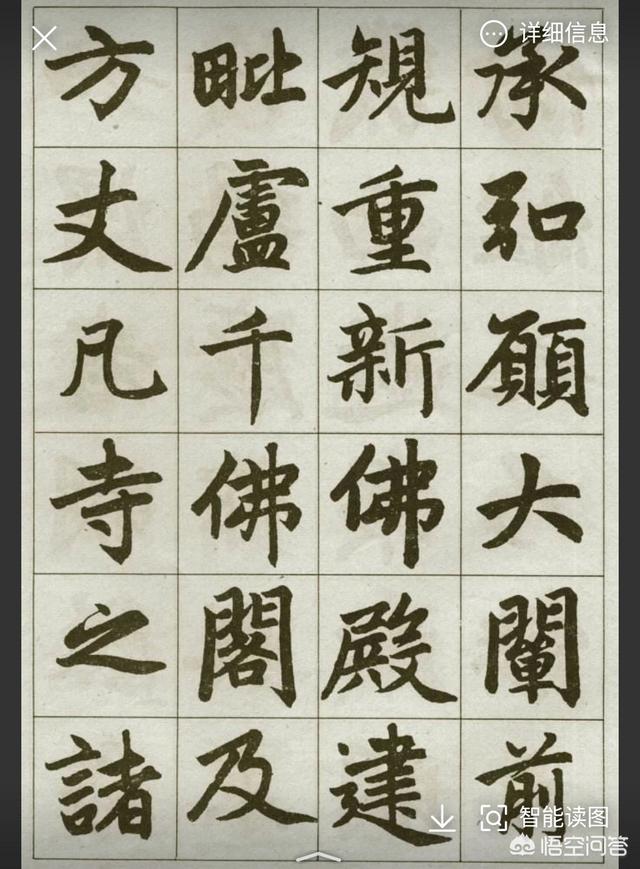 承弘願大闡前
規重新佛殿建
毗盧千佛閣及
方丈凡寺之諸
详细信息
智能读图
悟空问答